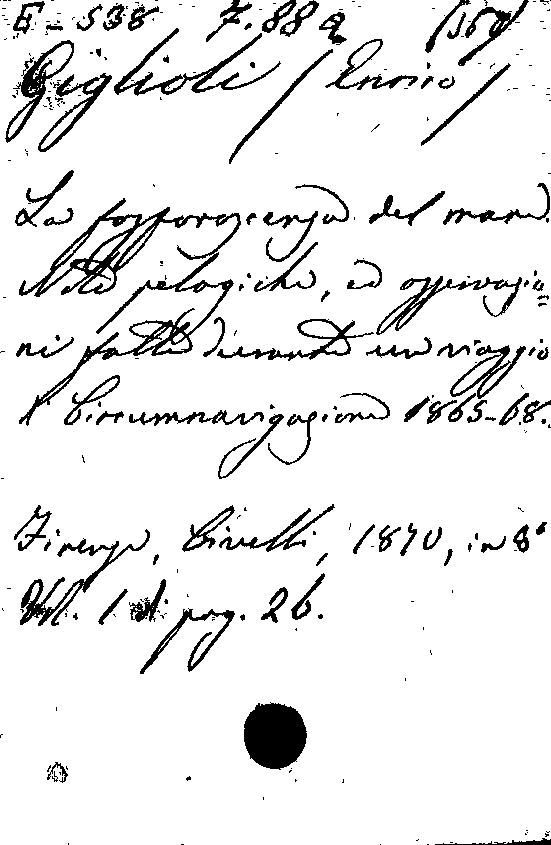 E-538 7.88 a (567)
Giglioli (Enrico)
La fosforescenza del mare.
Note pelagiche, ed osservazio=
ni fatte durante un viaggio
di Circumnavigazione 1865-68.
Firenze, Civelli, 1870, in 8°
Vol. 1 di pag. 26.